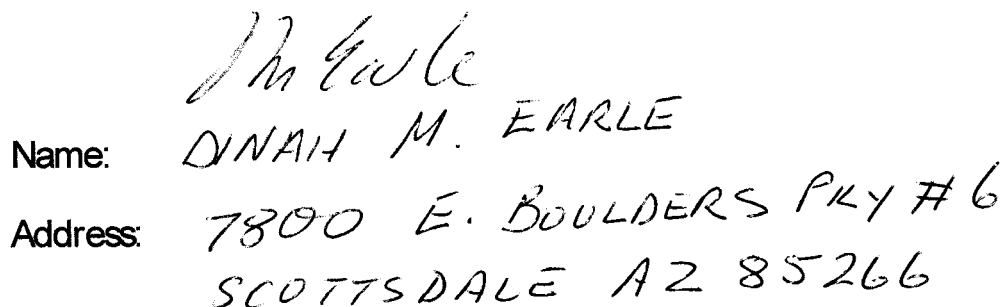 DM Earle
Name: DINAH M. EARLE
Address: 7800 E. BOULDERS PKY # 6
SCOTTSDALE AZ 85266